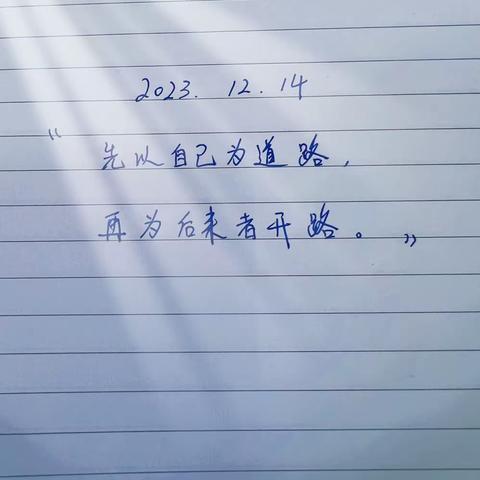 2023. 12. 14
“先以自己为道路,
再为后来者开路。”